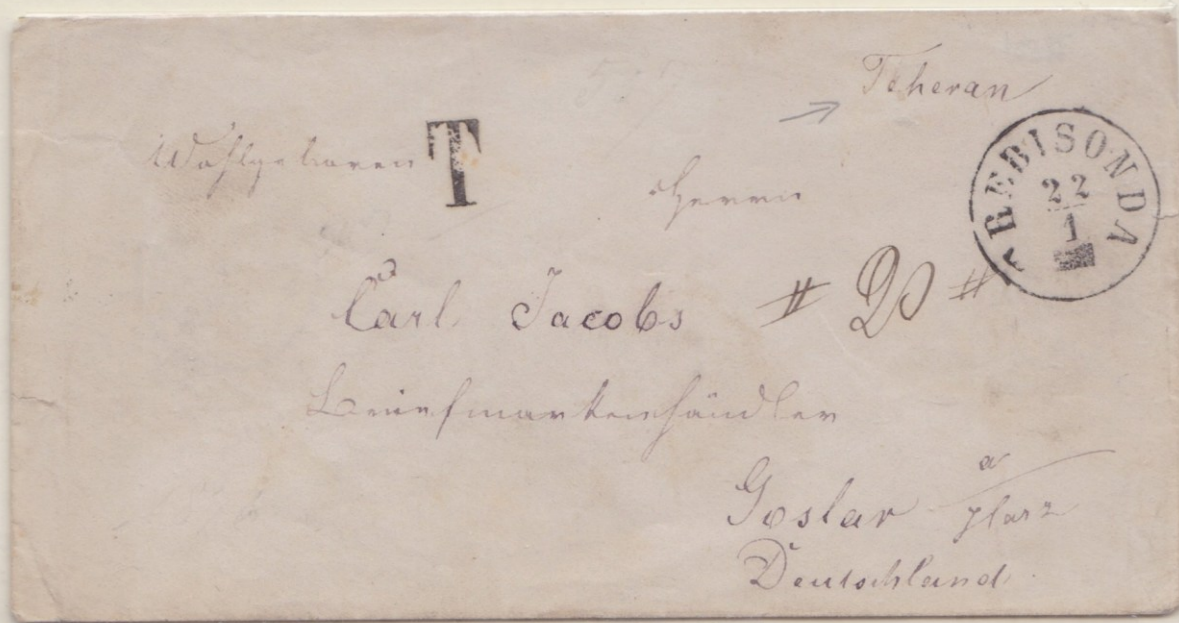 Teheran
Wohlgeboren T
Herrn
TREBISONDA
22
1
Carl Jacobs # 20 #
Briefmarkenhändler
Goslar a/Harz
Deutschland